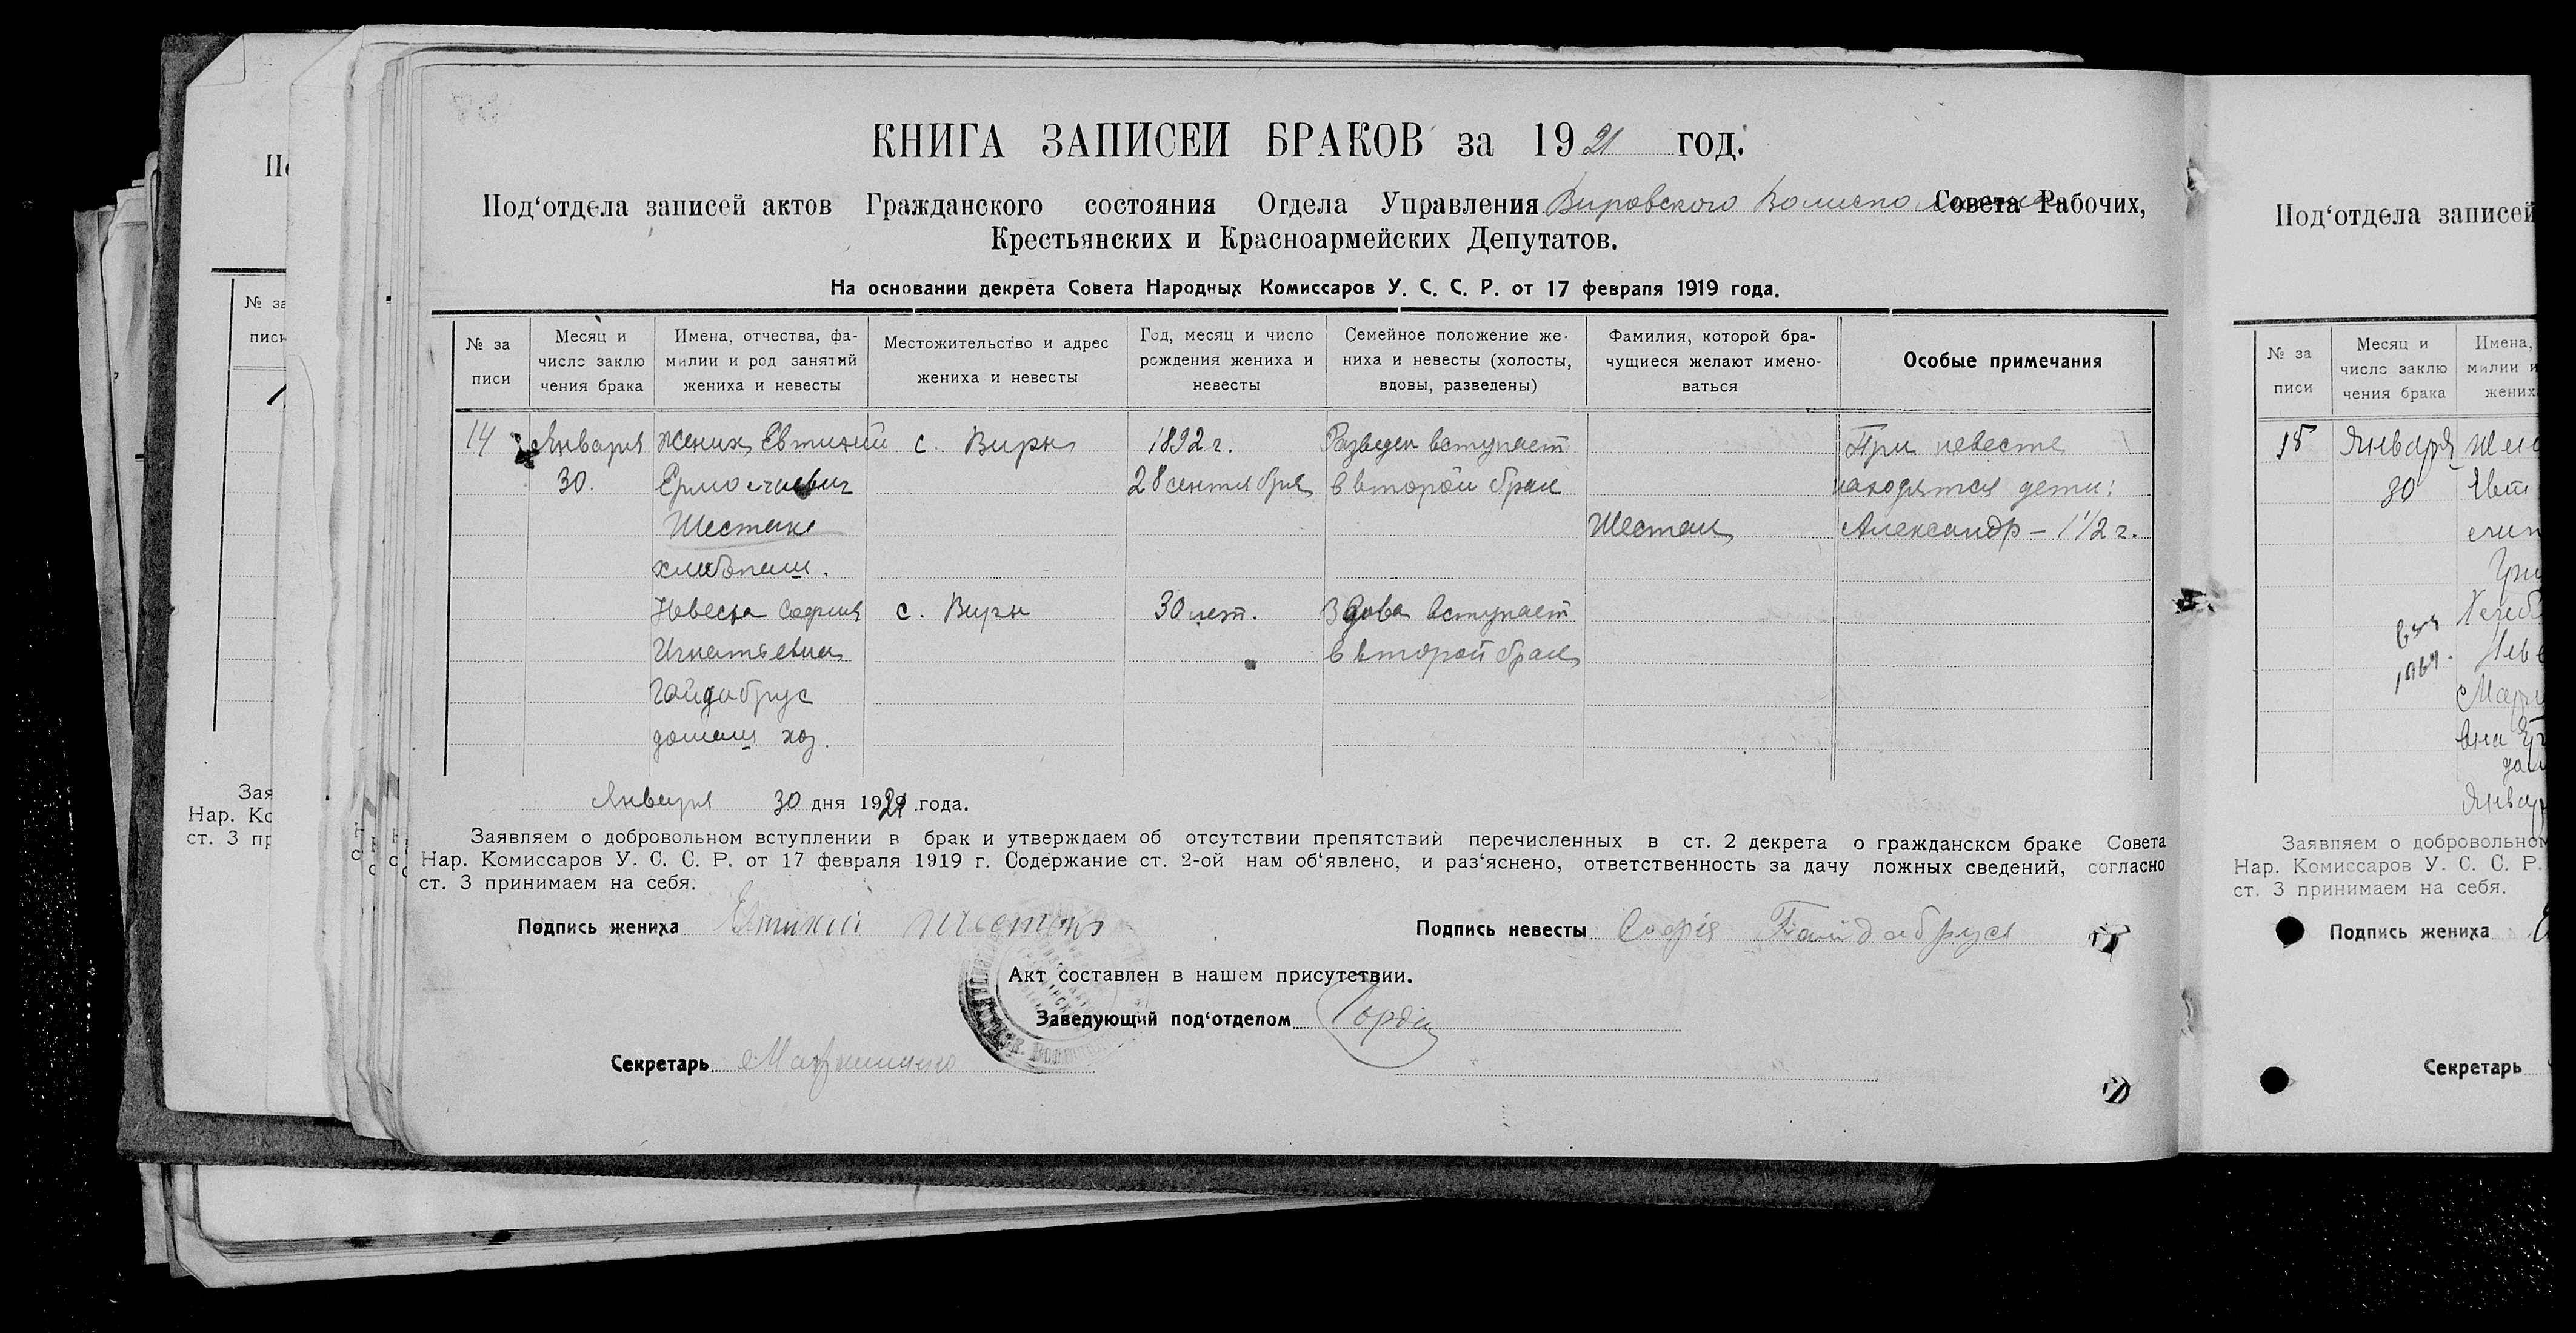 КНИГА ЗАПИСЕЙ БРАКОВ за 1921 год.
Под‘отдела записей актов Гражданского состояния Отдела Управления Вировского Волисполкома Совета Рабочих,
Крестьянских и Красноармейских Депутатов.
На основании декрета Совета Народных Комиссаров У. С. С. Р. от 17 февраля 1919 года.
№ за
писи
Месяц и
число заклю
чения брака
Имена, отчества, фа-
милии и род занятий
жениха и невесты
Местожительство и адрес
жениха и невесты
Год, месяц и число
рождения жениха и
невесты
Семейное положение же-
ниха и невесты (холосты,
вдовы, разведены)
Фамилия, которой бра-
чущиеся желают имено-
ваться
Особые примечания
14 Января Жених Евтихий с. Виры 1892 г. Разведен вступает При невесте
30. 28 сентября в второй брак находятся дети:
Шестак Шестак Александр – 1 1/2 г.
хлебопаш.
Невеста София с. Виры 30 лет. Вдова вступает
Игнатьевна в второй брак
Гайдабрус
домаш хоз.
Января 30 дня 1921 года.
Заявляем о добровольном вступлении в брак и утверждаем об отсутствии препятствий перечисленных в ст. 2 декрета о гражданском браке Совета
Нар. Комиссаров У. С. С. Р. от 17 февраля 1919 г. Содержание ст. 2-ой нам об‘явлено, и раз‘яснено, ответственность за дачу ложных сведений, согласно
ст. 3 принимаем на себя.
Подпись жениха Евтихий Шестак Подпись невесты Софія Гайдабруся
Акт составлен в нашем присутствии.
Заведующий под‘отделом
Секретарь
№ за
писи
Зая
Нар. Ко
ст. 3 пр
Под‘отдела записей
№ за
писи
Месяц и
число заклю
чения брака
Имена,
милии и
жених
15 Января
30
Заявляем о добровольном
Нар. Комиссаров У. С. С. Р.
ст. 3 принимаем на себя.
Подпись жениха
Секретарь